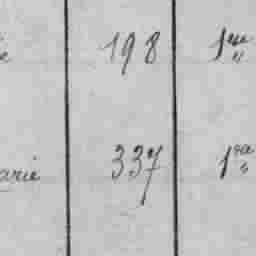 198 1ère
arie 337 1ère